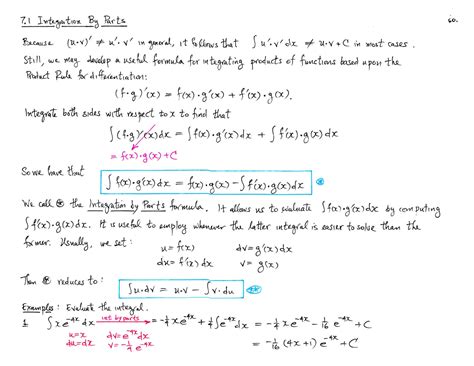 7.1 Integration By Parts
60.
Because (u·v)' ≠ u'·v' in general, it follows that ∫ u'·v' dx ≠ u·v + C in most cases.
Still, we may develop a useful formula for integrating products of functions based upon the
Product Rule for differentiation:
(f·g)'(x) = f(x)·g'(x) + f'(x)·g(x).
Integrate both sides with respect to x to find that
∫(f·g)'(x)dx = ∫f(x)·g'(x)dx + ∫f'(x)·g(x)dx
= f(x)·g(x) + C
So we have that ∫f(x)·g'(x)dx = f(x)·g(x) − ∫f'(x)·g(x)dx ⊛
We call ⊛ the Integration by Parts formula. It allows us to evaluate ∫f(x)·g'(x)dx by computing
∫f'(x)·g(x)dx. It is useful to employ whenever the latter integral is easier to solve than the
former. Usually, we set: u = f(x) dv = g'(x)dx
du = f'(x)dx v = g(x)
Then ⊛ reduces to: ∫u·dv = u·v − ∫v·du
Examples: Evaluate the integral.
1 ∫xe^{-4x}dx int by parts = -1/4 xe^{-4x} + 1/4 ∫e^{-4x}dx = -1/4 xe^{-4x} - 1/16 e^{-4x} + C
u=x dv=e^{-4x}dx
du=dx v=-1/4 e^{-4x} = -1/16 (4x+1)e^{-4x} + C